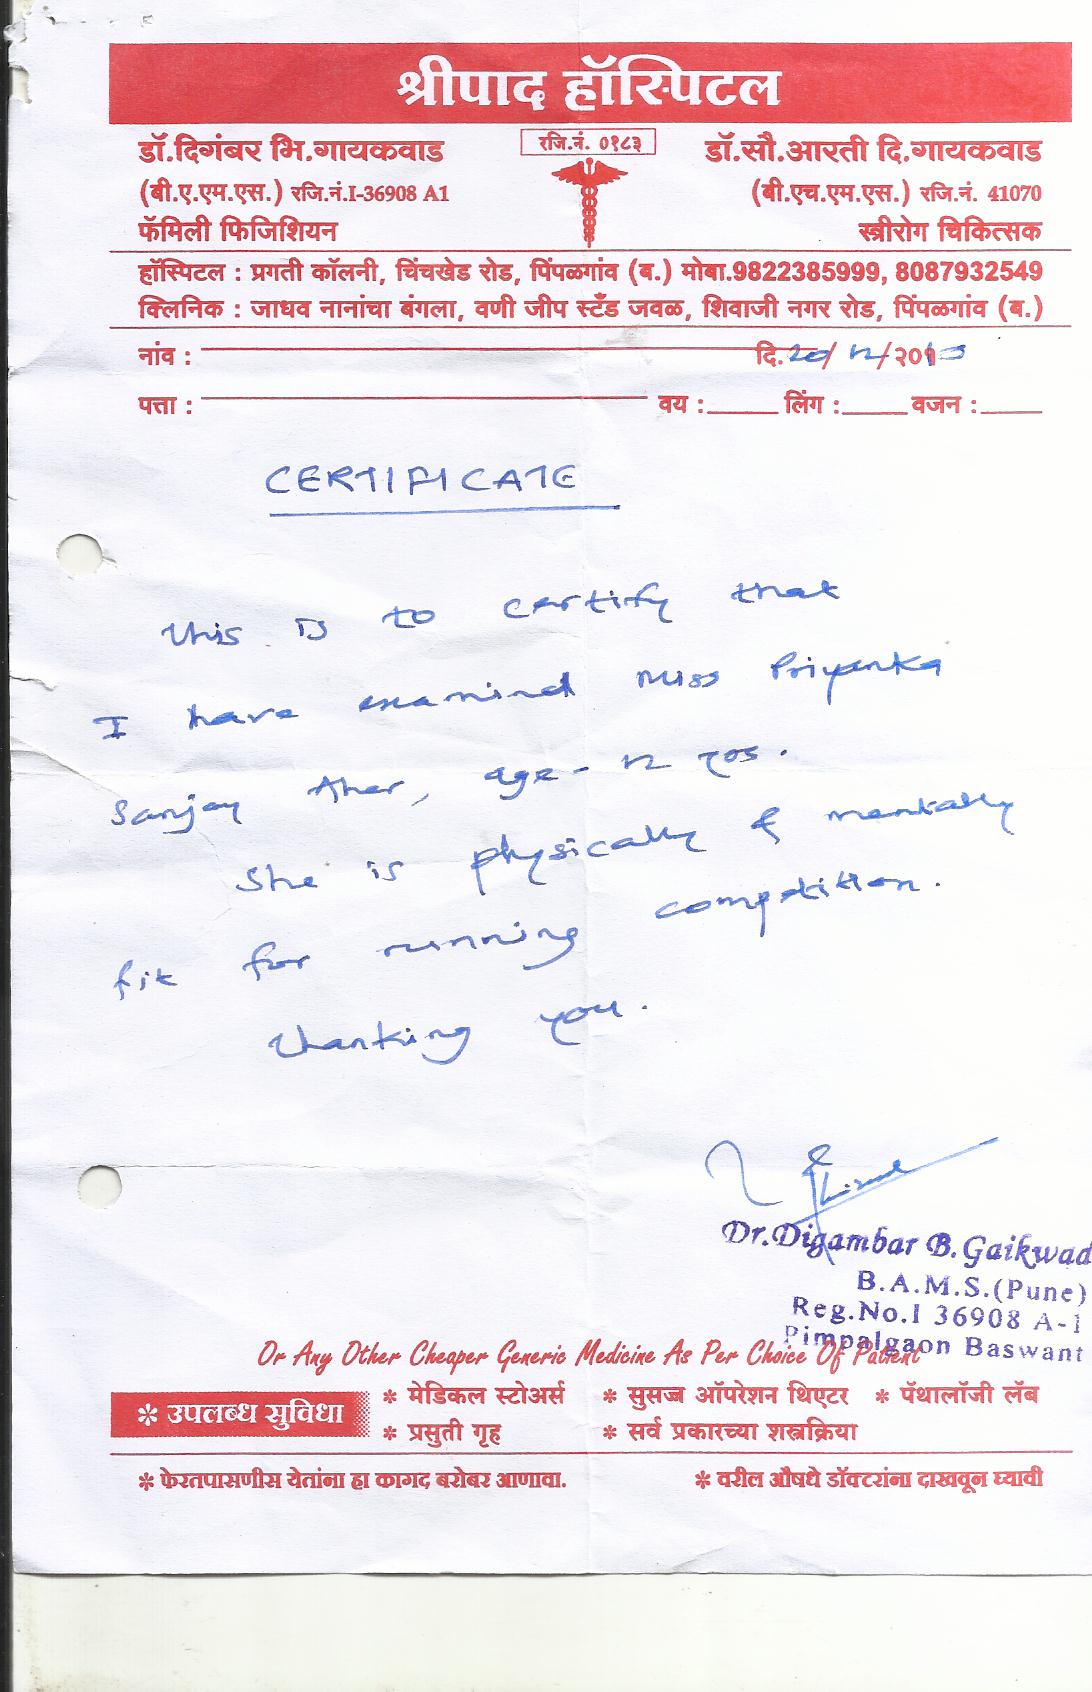 श्रीपाद हॉस्पिटल
रजि.नं. ०१८३
डॉ.दिगंबर भि.गायकवाड
(बी.ए.एम.एस.) रजि.नं.I-36908 A1
फॅमिली फिजिशियन
डॉ.सौ.आरती दि.गायकवाड
(बी.एच.एम.एस.) रजि.नं. 41070
स्त्रीरोग चिकित्सक
हॉस्पिटल : प्रगती कॉलनी, चिंचखेड रोड, पिंपळगांव (ब.) मोबा.9822385999, 8087932549
क्लिनिक : जाधव नानांचा बंगला, वणी जीप स्टँड जवळ, शिवाजी नगर रोड, पिंपळगांव (ब.)
नांव : दि.20/12/२०१
पत्ता : वय : लिंग : वजन :
CERTIFICATE
This is to certify that
I have examined Miss Priyanka
Sanjay Aher, age - 12 yrs.
She is physically & mentally
fit for running competition.
Thanking you.
Dr.Digambar B.Gaikwad
B.A.M.S.(Pune)
Reg.No.I 36908 A-1
Pimpalgaon Baswant
Or Any Other Cheaper Generic Medicine As Per Choice Of Patient
* उपलब्ध सुविधा
* मेडिकल स्टोअर्स * सुसज्ज ऑपरेशन थिएटर * पॅथालॉजी लॅब
* प्रसुती गृह * सर्व प्रकारच्या शस्त्रक्रिया
* फेरतपासणीस येतांना हा कागद बरोबर आणावा. * वरील औषधे डॉक्टरांना दाखवून घ्यावी